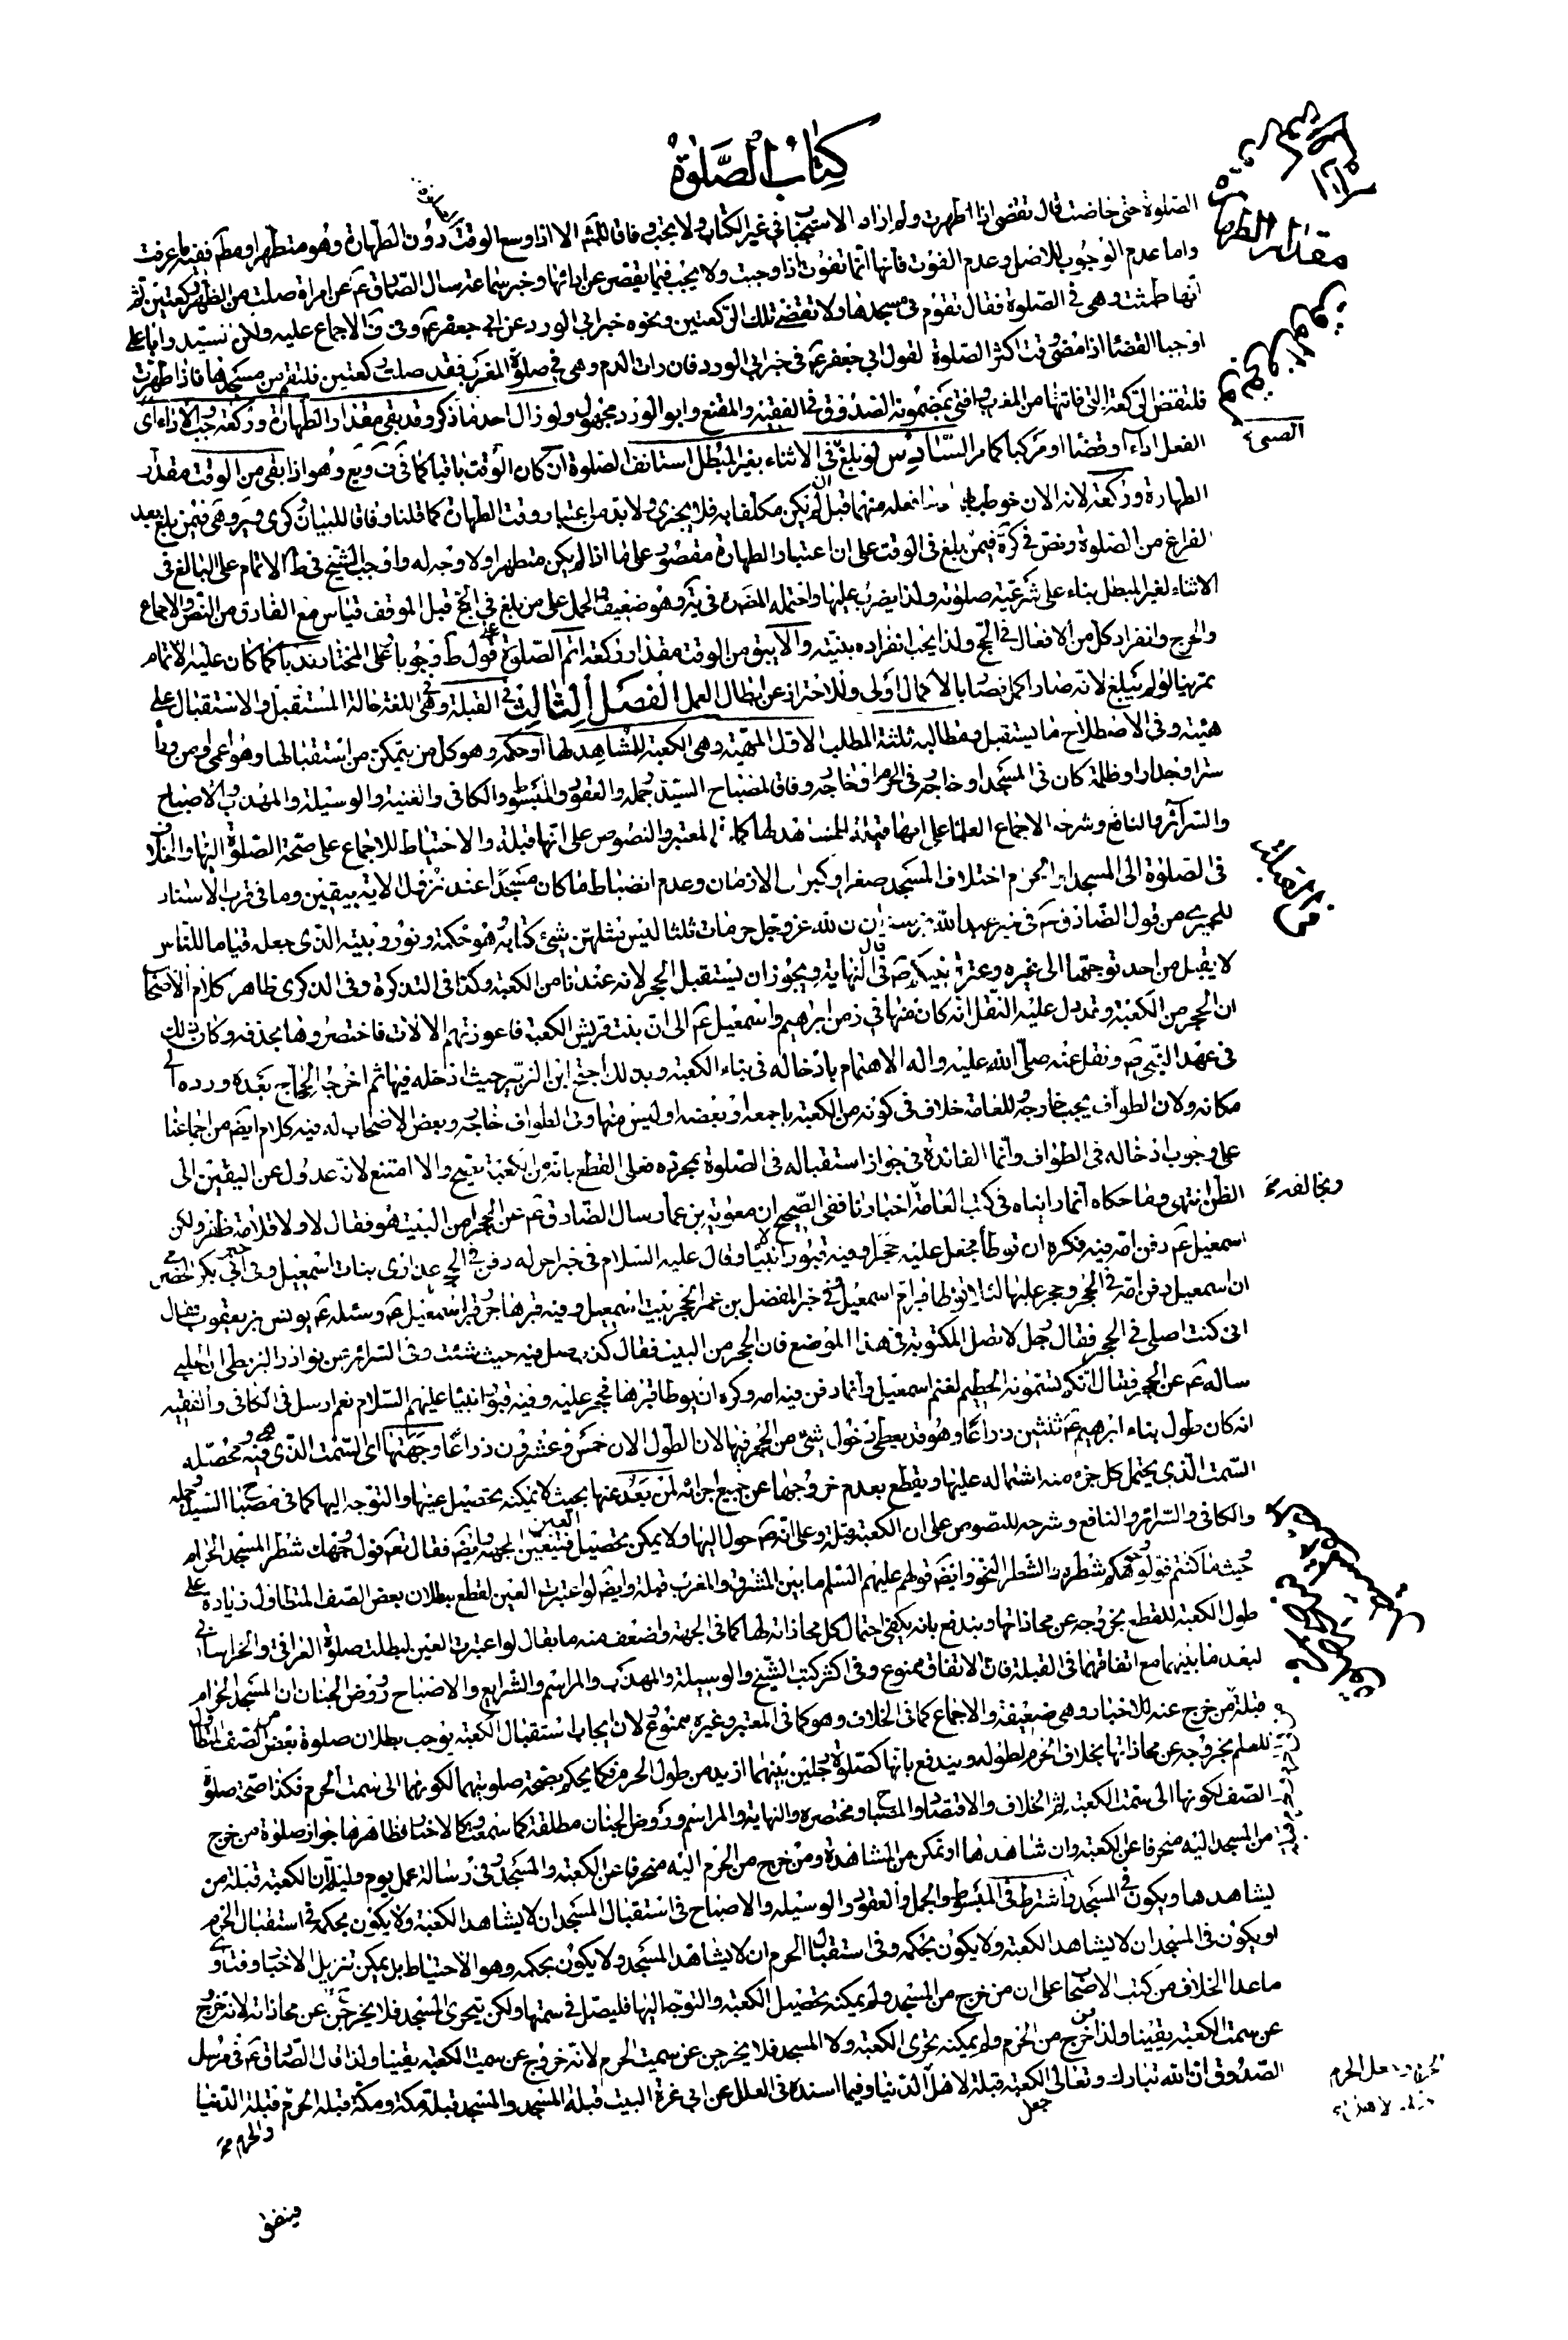 كتاب الصلوة
الصلوة حتى حاضت قال تقضى اذا طهرت ولو اراد الاستحباب فى غير الكتاب ولا يجب وفاقا للاكثر الا اذا وسع الوقت دون الطهارة وهو متطهر او مط ففيه ما عرفت
واما عدم الوجوب للاصل وعدم الفوت فانها انما تفوت اذا وجبت ولا يجب فيما يقصر عن ادائها وخبر سماعة سال الصادق ع عن امراة صلت من الظهر ركعتين ثم
انها طمثت وهى فى الصلوة فقال تقوم من مسجدها ولا تقضى تلك الركعتين ونحوه خبر ابى الورد عن ابى جعفر ع وفى ف الاجماع عليه ولكن السيد وابا على
اوجبا القضاء اذا مضى وقت اكثر الصلوة لقول ابى جعفر ع فى خبر ابى الورد فان رات الدم وهى فى صلوة المغرب فقد صلت ركعتين فلتقم من مسجدها فاذا طهرت
فلتقض الركعة التى فاتتها من المغرب وافتى بمضمونه الصدوق فى الفقيه والمقنع وابو الورد مجهول ولو زال احد ما ذكر وقد بقى مقدار الطهارة وركعة وجب الاداء اى
الفعل اداء او قضاء او مركبا كما مر السادس لو بلغ فى الاثناء بغير المبطل استانف الصلوة ان كان الوقت باقيا كما فى ف ويع وهو اذا بقى من الوقت مقدار
الطهارة وركعة لانه الان خوطب بها فما فعله منها قبل ان لم يكن مكلفا به فلا يجزى ولا بد من اعتبار وقت الطهارة كما قلنا وفاقا للبيان وكرى وير وهى فيمن بلغ بعد
الفراغ من الصلوة ونص فى كرة فيمن بلغ فى الوقت على ان اعتبار الطهارة مقصور على ما اذا لم يكن متطهرا ولا وجه له واوجب الشيخ فى ط الاتمام على البالغ فى
الاثناء لغير المبطل بناء على شرعية صلوته ولذا يضرب عليها واحتمله المصنف فى ية وهو ضعيف والحمل على من بلغ فى الحج قبل الموقف قياس مع الفارق من النص والاجماع
والحرج وانفراد كل من الافعال فى الحج ولذا يجب انفراده بنيته والا يبق من الوقت مقدار ركعة اتم الصلوة على قول ط وجوبا وعلى المختار ندبا كما كان عليه الاتمام
تمرينا لو لم يبلغ لانه صار اكمل فصار بالاكمال اولى وللاحتراز عن ابطال العمل الفصل الثالث فى القبلة وهى لغة حالة المستقبل والاستقبال على
هيئته وفى الاصطلاح ما يستقبل ومطالبه ثلثة المطلب الاول المهية وهى الكعبة للمشاهد لها او حكمه وهو كل من يتمكن من استقبالها وهو اعمى او من وراء
ستر او جدار او ظلمة كان فى المسجد او خارجه فى الحرم او خارجه وفاقا لمصباح السيد وجمله والعقود والمبسوط والكافى والغنية والوسيلة والمهذب والاصباح
والسرائر والنافع وشرحه لاجماع العلماء على انها قبلة للمشاهد لها كما فى المعتبر والنصوص على انها قبلة والاحتياط للاجماع على صحة الصلوة اليها والخلاف
فى الصلوة الى المسجد او الحرم اختلاف المسجد صغرا وكبرا فى الازمان وعدم انضباط ما كان مسجدا عند نزول الاية بيقين وما فى قرب الاسناد
للحميرى من قول الصادق ع فى خبر عبد الله بن سنان ان لله عز وجل حرمات ثلثا ليس مثلهن شئ كتابه هو حكمة ونور وبيته الذى جعله قياما للناس
لا يقبل من احد توجها الى غيره وعترة نبيكم ص قال فى النهاية ويجوز ان يستقبل الحجر لانه عندنا من الكعبة وكذا فى التذكرة وفى الذكرى ظاهر كلام الاصحاب
ان الحجر من الكعبة وقد دل عليه النقل انه كان منها فى زمن ابراهيم واسمعيل ع الى ان بنت قريش الكعبة فاعوزتهم الالات فاختصروها بحذفه وكان ذلك
فى عهد النبى ص ونقل عنه صلى الله عليه واله الاهتمام بادخاله فى بناء الكعبة وبذلك احتج ابن الزبير حيث ادخله فيها ثم اخرجه الحجاج بعده ورده الى
مكانه ولان الطواف يجب خارجه وللعامة خلاف فى كونه من الكعبة باجمعه او بعضه او ليس منها وفى الطواف خارجه وبعض الاصحاب له فيه كلام ايضا مع اجماعنا
على وجوب ادخاله فى الطواف وانما الفائدة فى جواز استقباله فى الصلوة بمجرده فعلى القطع بانه من الكعبة يصح والا امتنع لانه عدول عن اليقين الى
الظن انتهى وما حكاه انما رايناه فى كتب العامة ويخالفه اخبارنا ففى الصحيح ان معوية بن عمار سال الصادق ع عن الحجر امن البيت هو فقال لا ولا قلامة ظفر ولكن
اسمعيل ع دفن امه فيه فكره ان توطا فجعل عليه حجرا وفيه قبور انبياء وقال عليه السلام فى خبر اخر له دفن فى الحجر عذارى بنات اسمعيل وفى خبر ابى بكر الحضرمى
ان اسمعيل دفن امه فى الحجر وحجر عليها لئلا يوطا قبر ام اسمعيل وفى خبر المفضل بن عمر الحجر بيت اسمعيل وفيه قبر هاجر وقبر اسمعيل ع وسئله ع يونس بن يعقوب فقال
انى كنت اصلى فى الحجر فقال رجل لا تصل المكتوبة فى هذا الموضع فان الحجر من البيت فقال كذب صل فيه حيث شئت وفى السرائر عن نوادر البزنطى ان الحلبى
ساله ع عن الحجر فقال انكم تسمونه الحطيم لغنم اسمعيل وانما دفن فيه امه وكره ان يوطا قبرها فحجر عليه وفيه قبور انبياء عليهم السلام نعم ارسل فى الكافى والفقيه
انه كان طول بناء ابراهيم ع ثلثين ذراعا وهو قد يعطى دخول شئ من الحجر فيها لان الطول الان خمس وعشرون ذراعا وجهتها اى السمت الذى هى فيه ومحصله
السمت الذى يحتمل كل جزء منه اشتماله عليها ويقطع بعدم خروجها عن جميع اجزائه لمن بعد عنها بحيث لا يمكنه تحصيل عينها والتوجه اليها كما فى مصباح السيد وجمله
والكافى والسرائر والنافع وشرحه للنصوص على ان الكعبة قبلة وعلى انه ص حول اليها ولا يمكن تحصيل العين فتتعين الجهة وايضا فقال تعم فول وجهك شطر المسجد الحرام
وحيث ما كنتم فولوا وجوهكم شطره والشطر النحو وايضا قولهم عليهم السلم ما بين المشرق والمغرب قبلة وايضا لو اعتبرت العين لقطع ببطلان بعض الصف المتطاول زيادة على
طول الكعبة للقطع بخروجه عن محاذاتها ويندفع بانه يكفى احتمال كل محاذاته لها كما فى الجهة واضعف منه ما يقال لو اعتبرت العين لبطلت صلوة العراقى والخراسانى
لبعد ما بينهما مع اتفاقهما فى القبلة فان الاتفاق ممنوع وفى اكثر كتب الشيخ والوسيلة والمهذب والمراسم والشرايع والاصباح وروض الجنان ان المسجد الحرام
قبلة من خرج عنه للاخبار وهى ضعيفة والاجماع كما فى الخلاف وهو كما فى المعتبر وغيره ممنوع لان ايجاب استقبال الكعبة يوجب بطلان صلوة بعض الصف المتطاول
للعلم بخروجه عن محاذاتها بخلاف الحرم لطوله ويندفع بانها كصلوة رجلين بينهما ازيد من طول الحرم فكما يحكم بصحة صلوتيهما لكونهما الى سمت الحرم فكذا صحة صلوة
الصف لكونها الى سمت الكعبة ثم الخلاف والاقتصاد والمصباح ومختصره والنهاية والمراسم وروض الجنان مطلقة كما سمعت كالاخبار فظاهرها جواز صلوة من خرج
من المسجد اليه منحرفا عن الكعبة وان شاهدها او تمكن من المشاهدة ومن خرج من الحرم اليه منحرفا عن الكعبة والمسجد وفى رسالة عمل يوم وليلة ان الكعبة قبلة من
يشاهدها ويكون فى المسجد واشترط فى المبسوط والجمل والعقود والوسيلة والاصباح فى استقبال المسجد ان لا يشاهد الكعبة ولا يكون بحكمه فى استقبال الحرم
او يكون فى المسجد ان لا يشاهد الكعبة ولا يكون بحكمه وفى استقبال الحرم ان لا يشاهد المسجد ولا يكون بحكمه وهو الاحتياط بل يمكن تنزيل الاخبار وفتاوى
ما عدا الخلاف من كتب الاصحاب على ان من خرج من المسجد ولم يمكنه تحصيل الكعبة والتوجه اليها فليصل فى سمتها ولكن يتحرى المسجد فلا يخرجن عن محاذاته لانه خروج
عن سمت الكعبة يقينا ولذا من خرج من الحرم ولم يمكنه تحرى الكعبة ولا المسجد فلا يخرجن عن سمت الحرم لانه خروج عن سمت الكعبة يقينا ولذا قال الصادق ع فى مرسل
الصدوق ان الله تبارك وتعالى جعل الكعبة قبلة لاهل الدنيا وفيما اسنده فى العلل عن ابى غرة البيت قبلة المسجد والمسجد قبلة مكة ومكة قبلة الحرم والحرم قبلة الدنيا